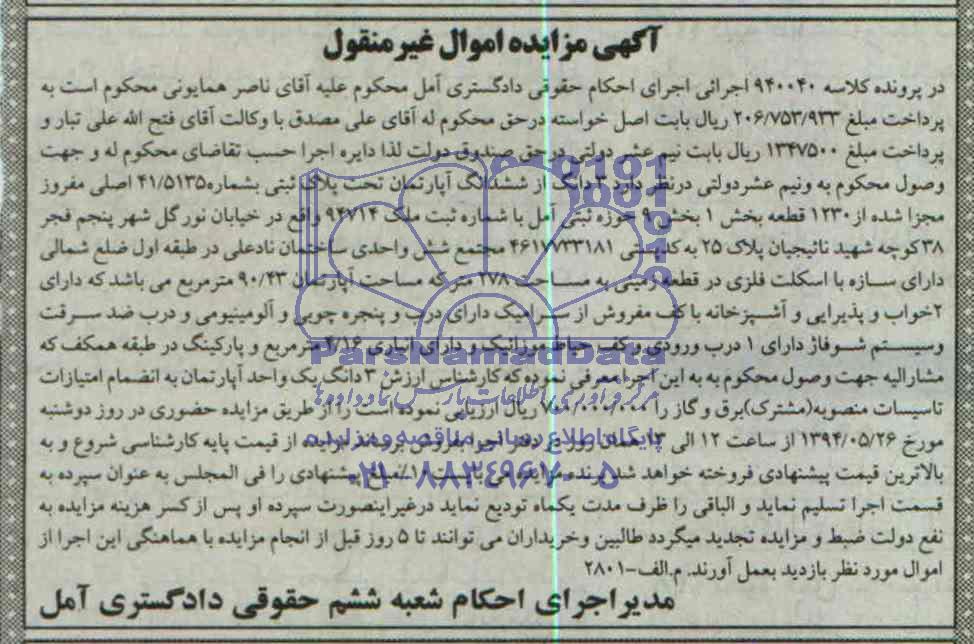 آگهی مزایده اموال غیرمنقول
در پرونده کلاسه ۹۴۰۰۴۰ اجرائی اجرای احکام حقوقی دادگستری آمل محکوم علیه آقای ناصر همایونی محکوم است به
پرداخت مبلغ ۲۰۶/۷۵۳/۹۳۳ ریال بابت اصل خواسته درحق محکوم له آقای علی مصدق با وکالت آقای فتح الله علی تبار و
پرداخت مبلغ ۱۳۴۷۵۰۰ ریال بابت نیم عشر دولتی درحق صندوق دولت لذا دایره اجرا حسب تقاضای محکوم له و جهت
وصول محکوم به ونیم عشردولتی درنظر دارد ۳ دانگ از ششدانگ آپارتمان تحت پلاک ثبتی بشماره۴۱/۵۱۳۵ اصلی مفروز
مجزا شده از ۱۲۳۰ قطعه بخش ۱ بخش ۹ حوزه ثبتی آمل با شماره ثبت ملک ۹۴۷۱۴ واقع در خیابان نور گل شهر پنجم فجر
۳۸ کوچه شهید نائیجیان پلاک ۲۵ به کدپستی ۴۶۱۷۷۳۳۱۸۱ مجتمع شش واحدی ساختمان نادعلی در طبقه اول ضلع شمالی
دارای سازه با اسکلت فلزی در قطعه زمینی به مساحت ۲۷۸ مترکه مساحت آپارتمان ۹۰/۴۳ مترمربع می باشد که دارای
۲خواب و پذیرایی و آشپزخانه با کف مفروش از سرامیک دارای درب و پنجره چوبی و آلومینیومی و درب ضد سرقت
وسیستم شوفاژ دارای ۱ درب ورودی و کف حیاط موزائیک و دارای انباری ۲/۱۶ مترمربع و پارکینگ در طبقه همکف که
مشارالیه جهت وصول محکوم به به این اجرا معرفی نموده که کارشناس ارزش ۳ دانگ یک واحد آپارتمان به انضمام امتیازات
تاسیسات منصوبه(مشترک)برق و گاز را ۷۰۰/۰۰۰/۰۰۰ ریال ارزیابی نموده است را از طریق مزایده حضوری در روز دوشنبه
مورخ ۱۳۹۴/۰۵/۲۶ از ساعت ۱۲ الی ۱۳ همان روز در دفتر اجرا بفروش برساند مزایده از قیمت پایه کارشناسی شروع و به
بالاترین قیمت پیشنهادی فروخته خواهد شد برنده مزایده می بایست ۱۰٪ مبلغ پیشنهادی را فی المجلس به عنوان سپرده به
قسمت اجرا تسلیم نماید و الباقی را ظرف مدت یکماه تودیع نماید درغیراینصورت سپرده او پس از کسر هزینه مزایده به
نفع دولت ضبط و مزایده تجدید میگردد طالبین وخریداران می توانند تا ۵ روز قبل از انجام مزایده با هماهنگی این اجرا از
اموال مورد نظر بازدید بعمل آورند. م.الف-۲۸۰۱
مدیر اجرای احکام شعبه ششم حقوقی دادگستری آمل
ParsNamadData
مرکز فرآوری اطلاعات پارس نماد داده ها
پایگاه اطلاع رسانی مناقصه و مزایده
۰۲۱-۸۸۳۴۹۶۷۰-۵